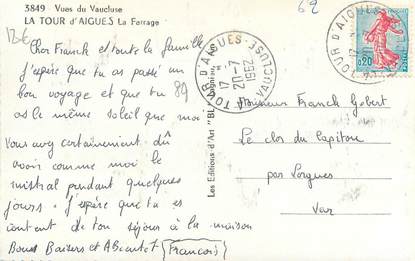 3849 Vues du Vaucluse
LA TOUR d'AIGUES La Forrage
62
Cher Franck et toute la famille
J'espère que tu as passé un
bon voyage et que tu
as le même soleil que moi
Vous avez certainement dû
avoir comme moi le
mistral pendant quelques
jours. J'espère que tu es
content de ton séjour à la maison
Bons Baisers et A bientot (François)
89
Les Editions d'Art "BL"
LA TOUR D'AIGUES
17H
21-7
1962
VAUCLUSE
TOUR D'AIGUES
0,20
Monsieur Franck Gobert
Le clos du Capitou
par Lorgues
Var